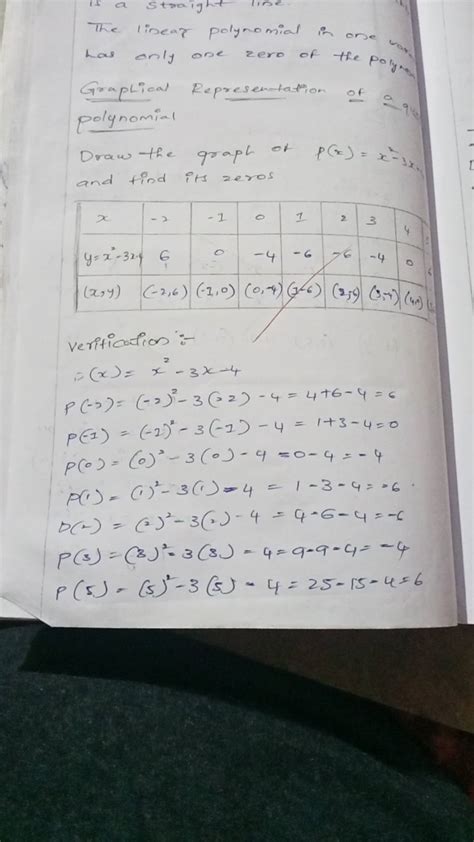 is a straight line.
The linear polynomial in one
has only one zero of the
Graphical Representation of a
polynomial
Draw the graph of P(x) = x² - 3x
and find its zeros
x -2 -1 0 1 2 3 4
y=x²-3x-4 6 0 -4 -6 -6 -4 0
(x,y) (-2,6) (-1,0) (0,-4) (1-6)
Verification :-
x² - 3x - 4
P(-2) = (-2)² - 3(-2) - 4 = 4+6-4 = 6
P(-1) = (-1)² - 3(-1) - 4 = 1+3-4=0
P(0) = (0)² - 3(0) - 4 = 0-4 = -4
P(1) = (1)² - 3(1) - 4 = 1-3-4 = -6
P(2) = (2)² - 3(2) - 4 = 4-6-4 = -6
P(3) = (3)² - 3(3) - 4 = 9-9-4 = -4
P(5) = (5)² - 3(5) - 4 = 25-15-4 = 6